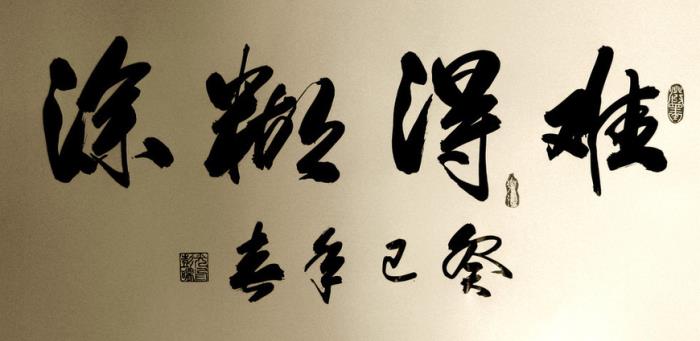 难得糊涂
癸巳年春